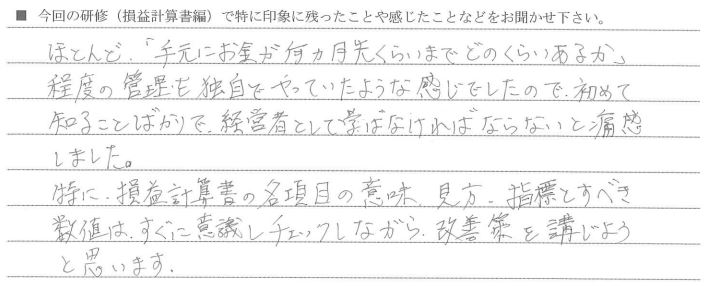 ■ 今回の研修（損益計算書編）で特に印象に残ったことや感じたことなどをお聞かせ下さい。
ほとんど、「手元にお金が何カ月先くらいまでどのくらいあるか」
程度の管理を独自でやっていたような感じでしたので、初めて
知ることばかりで、経営者として学ばなければならないと痛感
しました。
特に、損益計算書の各項目の意味、見方、指標とすべき
数値は、すぐに意識しチェックしながら、改善策を講じよう
と思います。